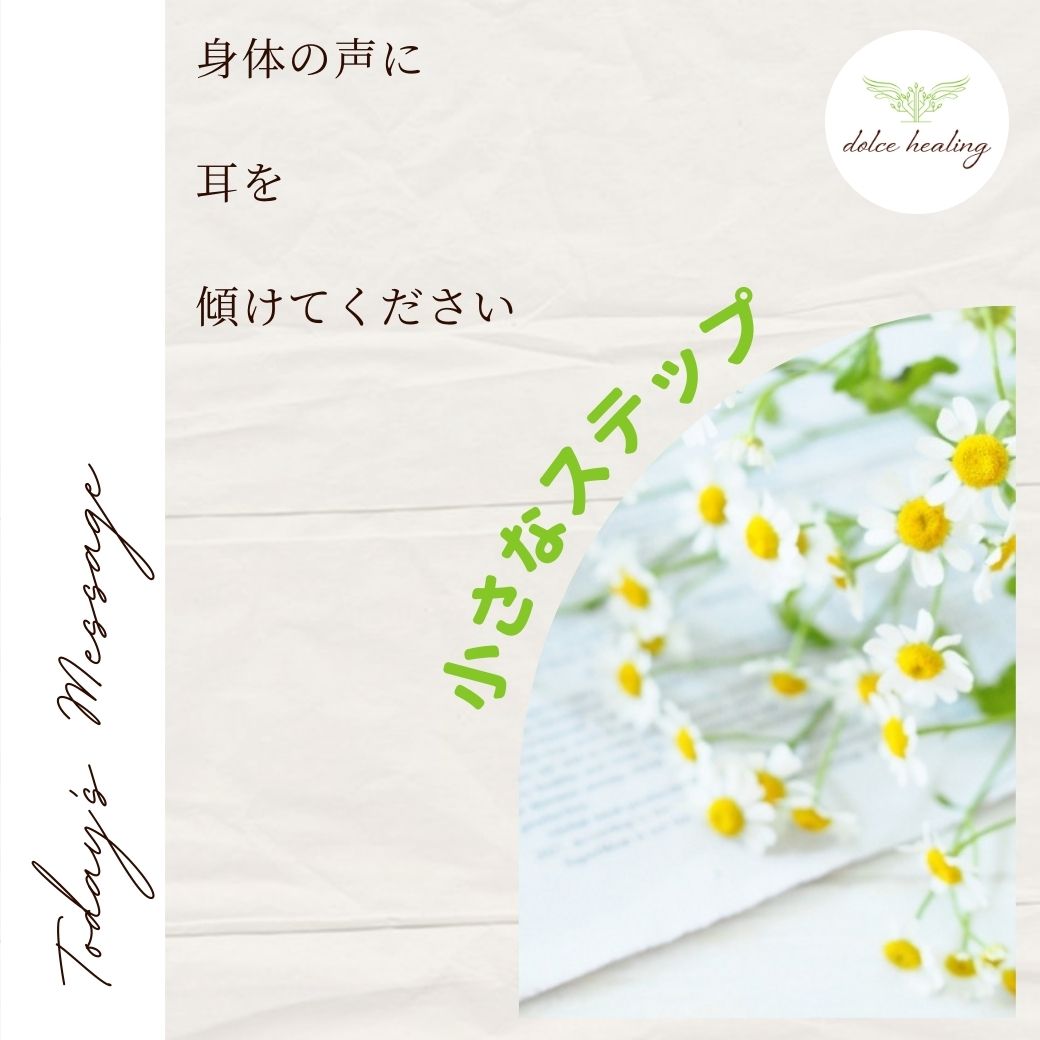 身体の声に
耳を
傾けてください
dolce healing
小さなステップ
Today's Message